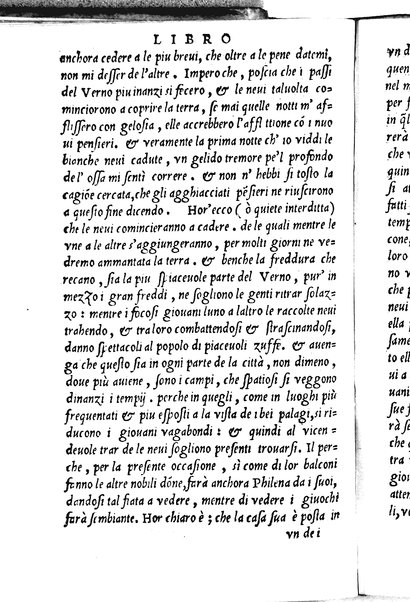 LIBRO
anchora cedere a le piu breui, che oltre a le pene datemi,
non mi desser de l'altre. Impero che, poscia che i passi
del Verno piu inanzi si fecero, & le neui taluolta co
minciorono a coprire la terra, se mai quelle notti m' af-
flissero con gelosia, elle accrebbero l'affl ttione cō i nuo
ui pensieri. & veramente la prima notte ch' io viddi le
bianche neui cadute, vn gelido tremore pe'l profondo
de l' ossa mi senti correre. & non n' hebbi si tosto la
cagiōe cercata, che gli agghiacciati pēsieri ne riuscirono
a questo fine dicendo. Hor'ecco (ò quiete interditta)
che le neui comincieranno a cadere. de le quali mentre le
vne a le altre s'aggiungeranno, per molti giorni ne ve-
dremo ammantata la terra. & benche la freddura che
recano, sia la piu spiaceuole parte del Verno, pur' in
mezzo i gran freddi, ne sogliono le genti ritrar solaz-
zo: mentre i focosi giouani luno a laltro le raccolte neui
trahendo, & tra loro combattendosi & strascinandosi,
danno spettacoli al popolo di piaceuoli zuffe. & auen-
ga che questo sia in ogni parte de la città, non dimeno,
doue più auiene, sono i campi, che spatiosi si veggono
dinanzi i tempij. perche in quegli, come in luoghi più
frequentati & piu esposti a la vista de i bei palagi, si ri-
ducono i giouani vagabondi: & quindi al vicen-
deuole trar de le neui sogliono presenti trouarsi. Il per-
che, per la presente occasione, sì come di lor balconi
fanno le altre nobili dōne, farà anchora Philena da i suoi,
dandosi tal fiata a vedere, mentre di vedere i giuochi
farà sembiante. Hor chiaro è; che la casa sua è posta in
vn de i